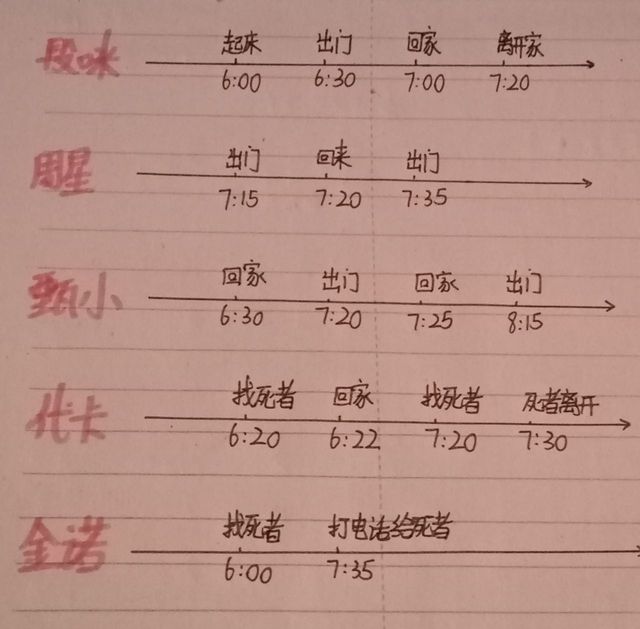 段咪 起床 出门 回家 离开家
6:00 6:30 7:00 7:20
周星 出门 回来 出门
7:15 7:20 7:35
甄小 回家 出门 回家 出门
6:30 7:20 7:25 8:15
代卡 找死者 回家 找死者 死者离开
6:20 6:22 7:20 7:30
金诺 找死者 打电话给死者
6:00 7:35